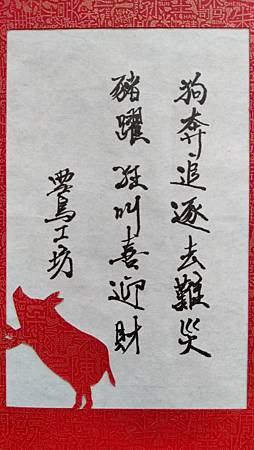 狗奔追逐去難災
豬躍叫喜迎財
工坊